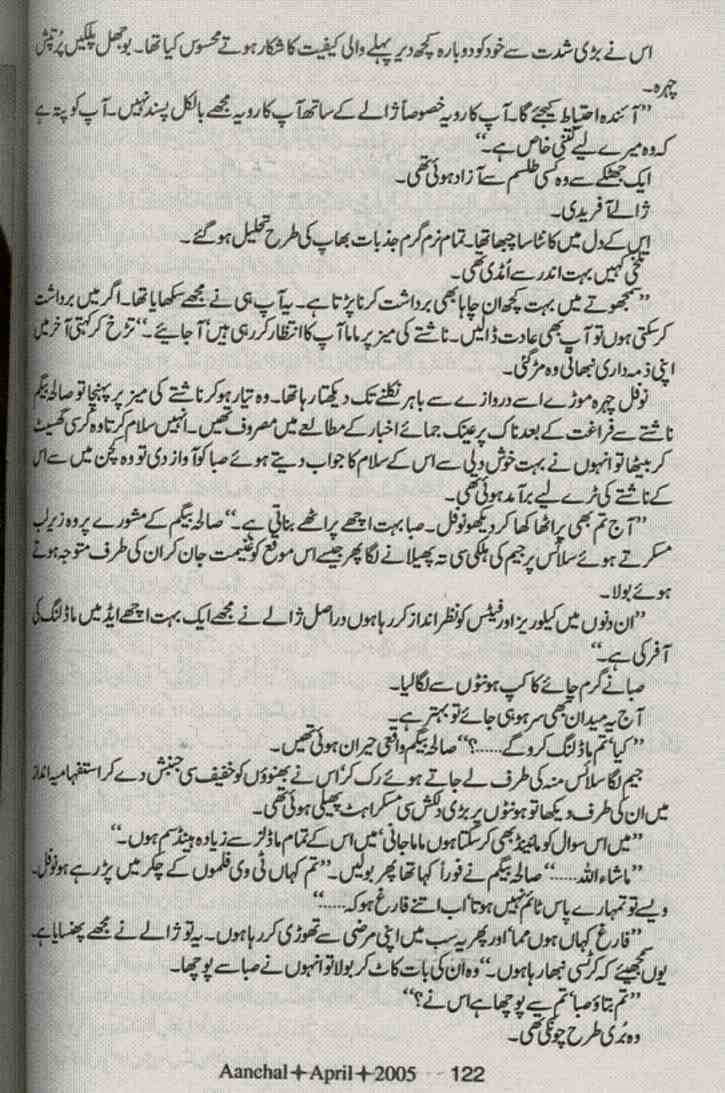 اس نے بڑی شدت سے خود کو دوبارہ کچھ دیر پہلے والی کیفیت کا شکار ہوتے محسوس کیا تھا۔ بوجھل پلکیں پُرتپش
چہرہ۔
”آئندہ احتیاط کیجئے گا۔ آپ کا رویہ خصوصاً ژالے کے ساتھ آپ کا رویہ مجھے بالکل پسند نہیں۔ آپ کو پتہ ہے
کہ وہ میرے لیے کتنی خاص ہے۔“
ایک جھٹکے سے وہ کسی طلسم سے آزاد ہوئی تھی۔
ژالے آفریدی۔
اس کے دل میں کانٹا سا چبھا تھا۔ تمام نرم گرم جذبات بھاپ کی طرح تحلیل ہو گئے۔
تلخی کہیں بہت اندر سے اُمڈی تھی۔
”سمجھوتے میں بہت کچھ ان چاہا بھی برداشت کرنا پڑتا ہے۔ یہ آپ ہی نے مجھے سکھایا تھا۔ اگر میں برداشت
کر سکتی ہوں تو آپ بھی عادت ڈالیں۔ ناشتے کی میز پر ماما آپ کا انتظار کر رہی ہیں‘ آ جائیے۔“ تڑخ کر کہتی آخر میں
اپنی ذمہ داری نبھاتی وہ مڑ گئی۔
نوفل چہرہ موڑے اسے دروازے سے باہر نکلنے تک دیکھتا رہا تھا۔ وہ تیار ہو کر ناشتے کی میز پر پہنچا تو صالحہ بیگم
ناشتے سے فراغت کے بعد ناک پر عینک جمائے اخبار کے مطالعے میں مصروف تھیں۔ انہیں سلام کرتا وہ کرسی گھسیٹ
کر بیٹھا تو انہوں نے بہت خوش دلی سے اس کے سلام کا جواب دیتے ہوئے صبا کو آواز دی تو وہ کچن میں سے اس
کے ناشتے کی ٹرے لیے برآمد ہوئی تھی۔
”آج تم بھی پراٹھا کھا کر دیکھو نوفل۔ صبا بہت اچھے پراٹھے بناتی ہے۔“ صالحہ بیگم کے مشورے پر وہ زیر لب
مسکراتے ہوئے سلائس پر جیم کی ہلکی سی تہ پھیلانے لگا پھر جیسے اس موقع کو غنیمت جان کر ان کی طرف متوجہ ہوتے
ہوئے بولا۔
”ان دنوں میں کیلوریز اور فیٹس کو نظر انداز کر رہا ہوں دراصل ژالے نے مجھے ایک بہت اچھے ایڈ میں ماڈلنگ کی
آفر کی ہے۔“
صبا نے گرم چائے کا کپ ہونٹوں سے لگا لیا۔
آج یہ میدان بھی سر ہو ہی جائے تو بہتر ہے۔
”کیا‘ تم ماڈلنگ کرو گے.....؟“ صالحہ بیگم واقعی حیران ہوئی تھیں۔
جیم لگا سلائس منہ کی طرف لے جاتے ہوئے رک کر‘ اس نے بھنوؤں کو خفیف سی جنبش دے کر استفہامیہ انداز
میں ان کی طرف دیکھا تو ہونٹوں پر بڑی دلکش سی مسکراہٹ پھیلی ہوئی تھی۔
”میں اس سوال کو مائینڈ بھی کر سکتا ہوں ماما جانی‘ میں اس کے تمام ماڈلز سے زیادہ ہینڈسم ہوں۔“
”ماشاء اللہ.....“ صالحہ بیگم نے فوراً کہا تھا پھر بولیں۔ ”تم کہاں ٹی وی فلموں کے چکر میں پڑ رہے ہو نوفل۔
ویسے تو تمہارے پاس ٹائم نہیں ہوتا‘ اب اتنے فارغ ہو کہ.....“
”فارغ کہاں ہوں مما‘ اور پھر یہ سب میں اپنی مرضی سے تھوڑی کر رہا ہوں۔ یہ تو ژالے نے مجھے پھنسایا ہے۔
یوں سمجھئیے کہ کرٹسی نبھا رہا ہوں۔“ وہ ان کی بات کاٹ کر بولا تو انہوں نے صبا سے پوچھا۔
”تم بتاؤ صبا‘ تم سے پوچھا ہے اس نے؟“
وہ بُری طرح چونکی تھی۔
Aanchal✦April✦2005 122